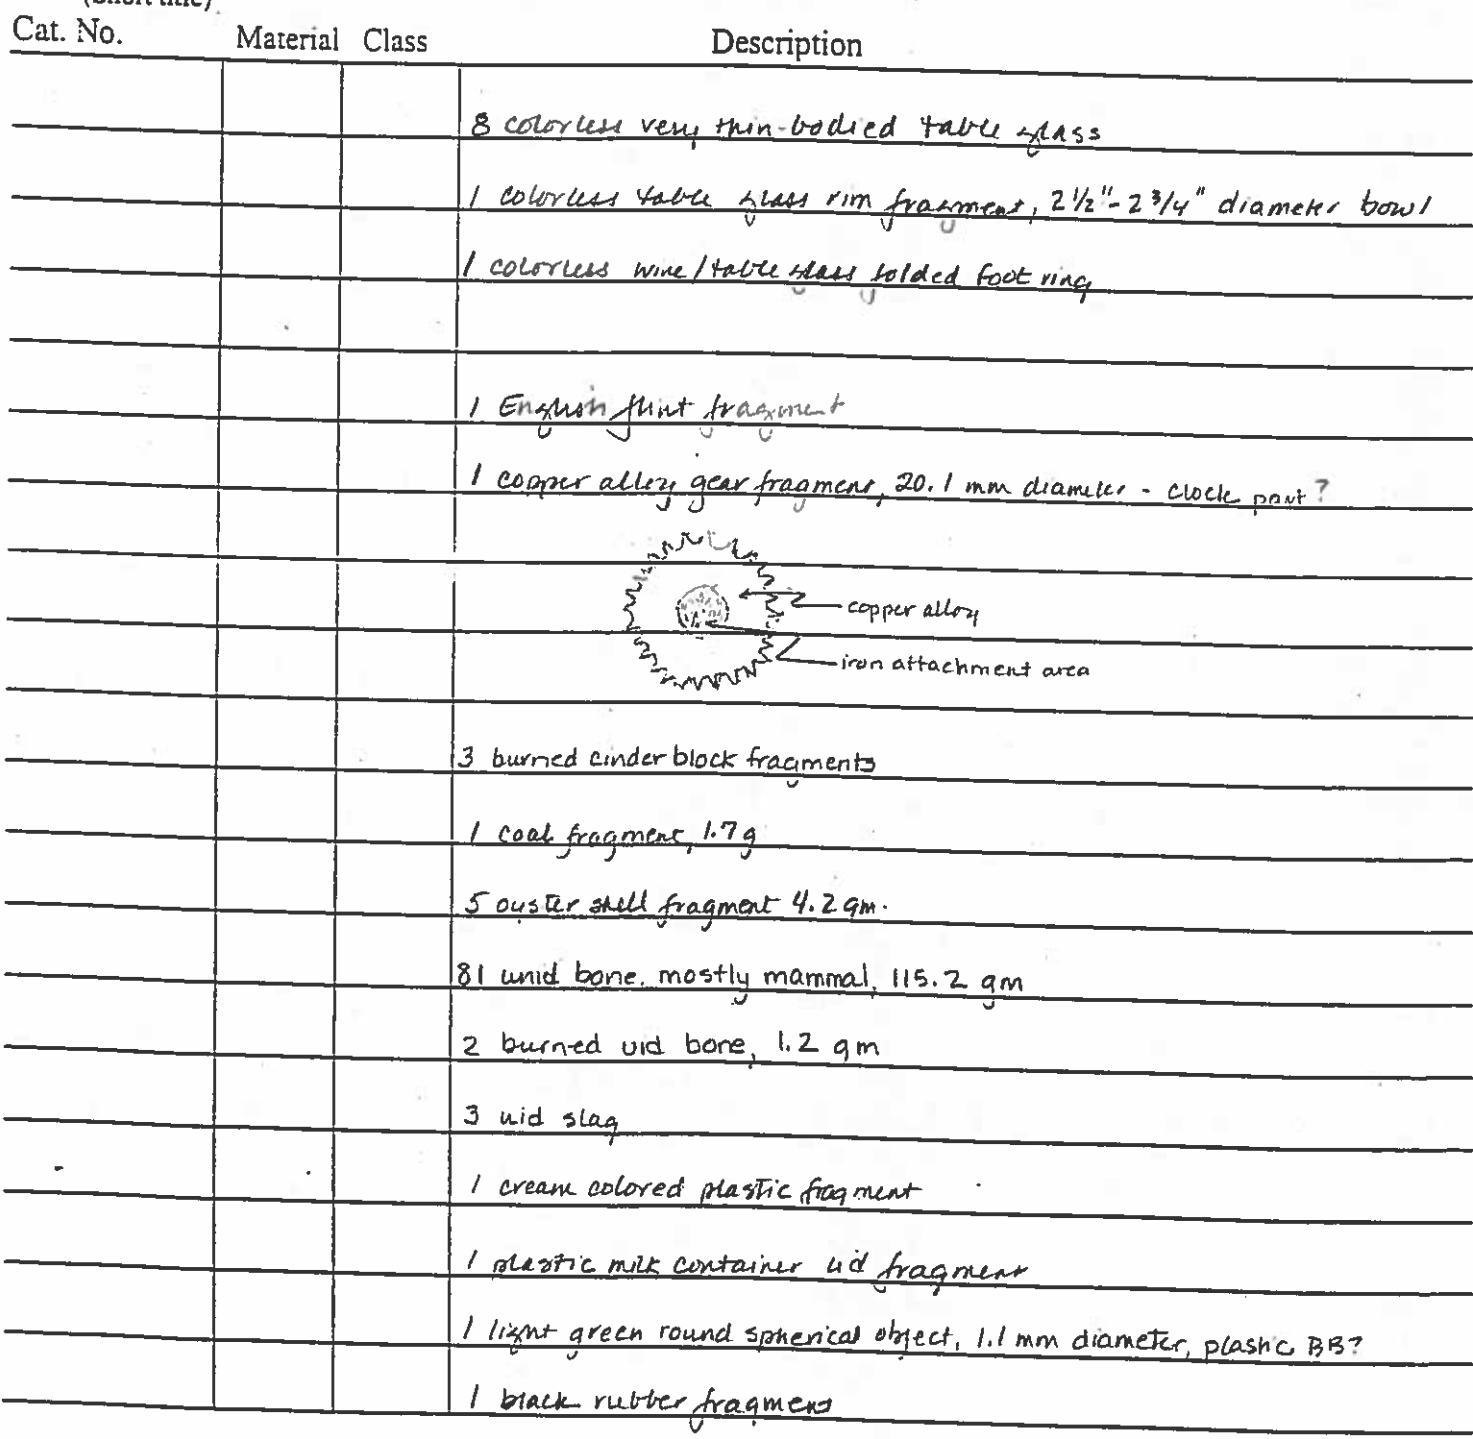 (Short title)
Cat. No. Material Class Description
8 colorless very thin-bodied table glass
1 colorless table glass rim fragment, 2 1/2" - 2 3/4" diameter bowl
1 colorless wine/table glass folded foot ring
1 English flint fragment
1 copper alloy gear fragment, 20.1 mm diameter - clock part?
copper alloy
iron attachment area
3 burned cinder block fragments
1 coal fragment, 1.7 g
5 oyster shell fragment 4.2 gm.
81 unid bone, mostly mammal, 115.2 gm
2 burned uid bone, 1.2 gm
3 uid slag
1 cream colored plastic fragment
1 plastic milk container lid fragment
1 light green round spherical object, 1.1 mm diameter, plastic BB?
1 black rubber fragment